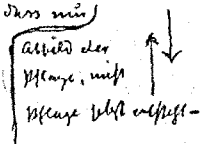 dass nur
Abbild der
Pflanze, nicht
Pflanze selbst entsteht –